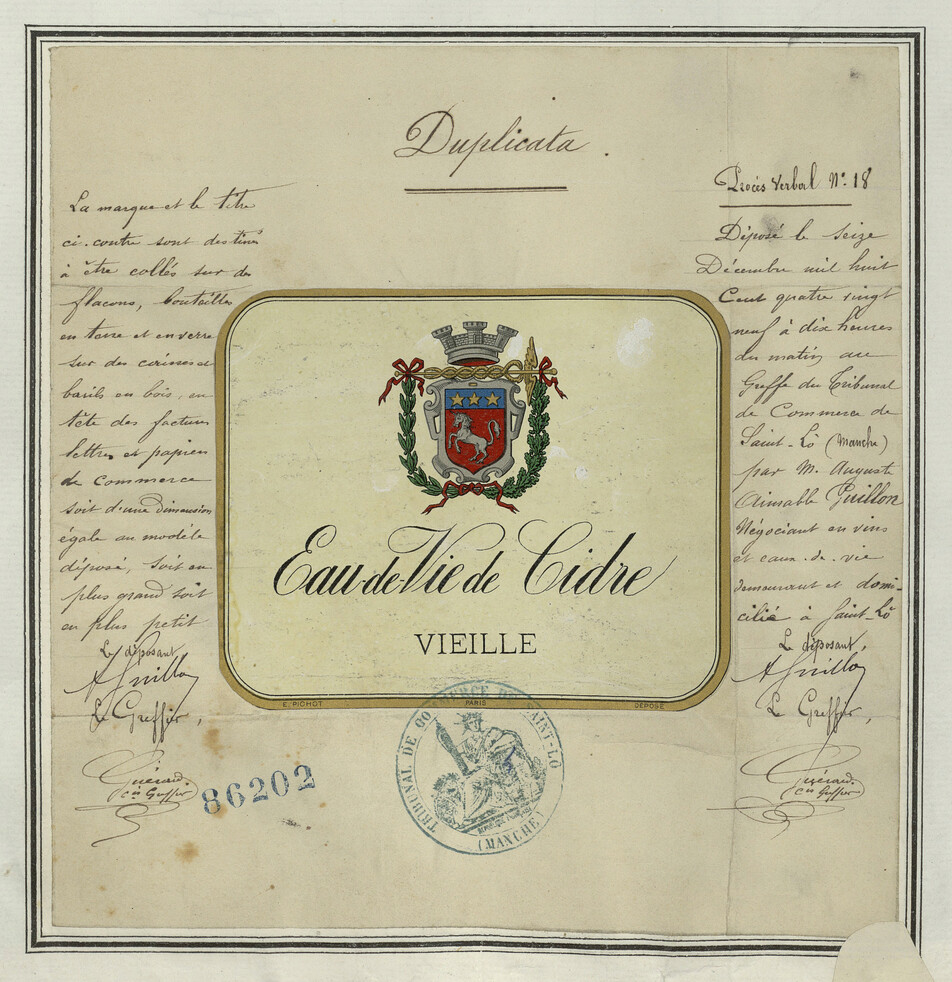 Duplicata.
La marque et le titre
ci-contre sont destinés
à être collés sur des
flacons, bouteilles
en terre et en verre
sur des caisses et
barils en bois, en
tête des factures
lettres et papiers
de commerce
soit d'une dimension
égale au modèle
déposé, soit en
plus grand soit
en plus petit
Le déposant
A Guillon
Le Greffier,
Guérard
cis Greffier
86202
Eau-de-Vie de Cidre
VIEILLE
E. PICHOT PARIS DÉPOSÉ
TRIBUNAL DE COMMERCE DE SAINT-LO
(MANCHE)
Procès Verbal No. 18
Déposé le seize
Décembre mil huit
Cent quatre vingt
neuf à dix heures
du matin, au
Greffe du Tribunal
de Commerce de
Saint-Lô (Manche)
par M. Auguste
Aimable Guillon
Négociant en vins
et eaux-de-vie
demeurant et domi-
cilié à Saint-Lô
Le déposant,
A Guillon
Le Greffier,
Guérard
cis Greffier